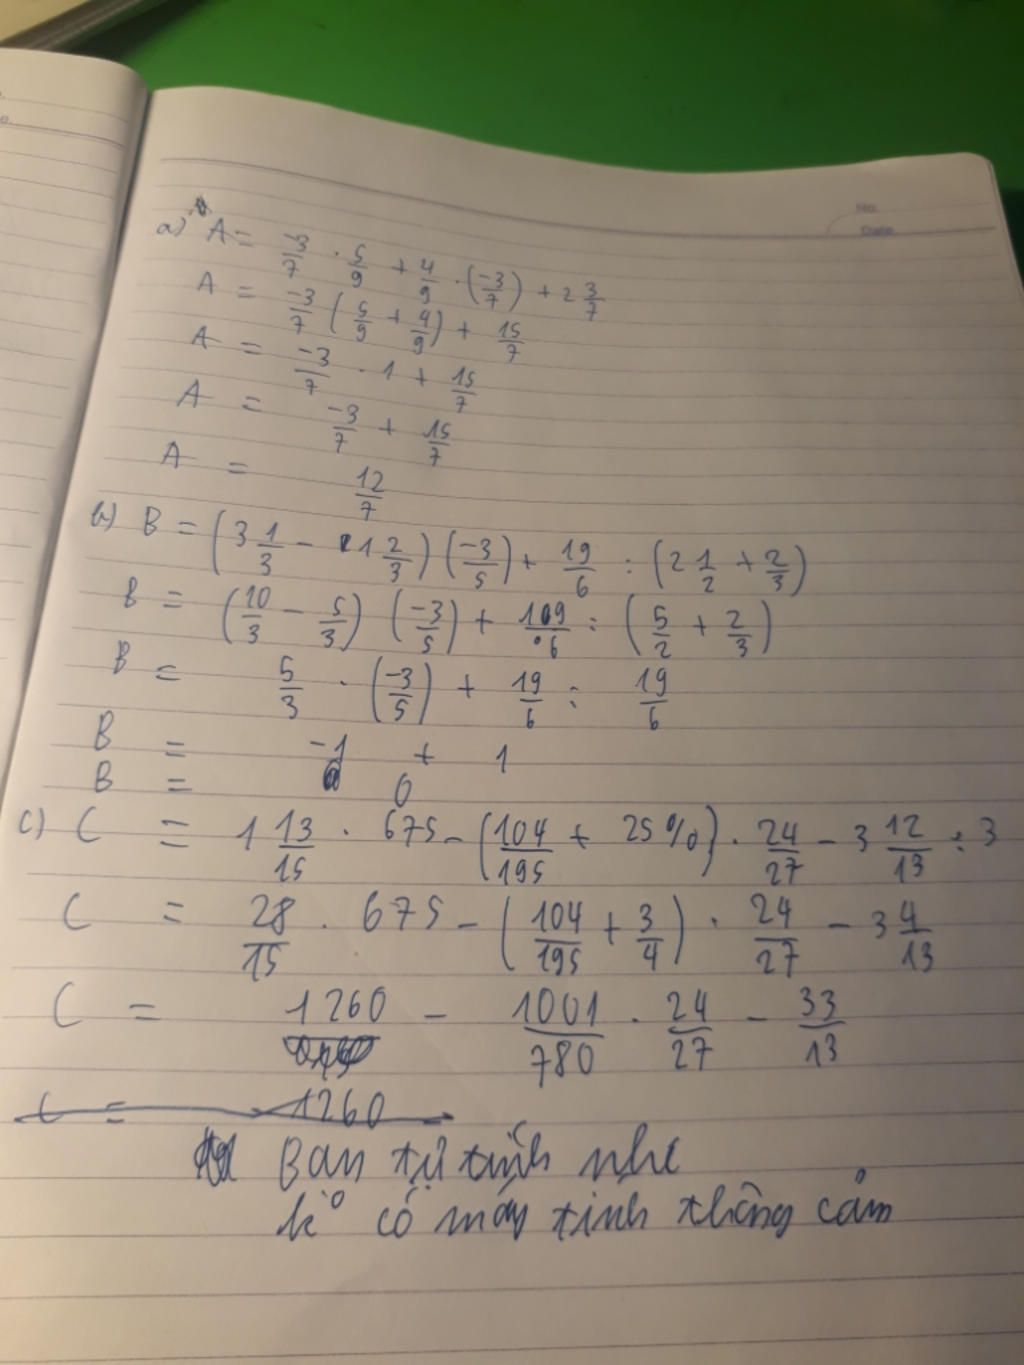 No.
Date.
a) A = -3/7 . 5/9 + 4/9 . (-3/7) + 2 3/7
A = -3/7 (5/9 + 4/9) + 15/7
A = -3/7 . 1 + 15/7
A = -3/7 + 15/7
A = 12/7
b) B = (3 1/3 - 1 2/3) (-3/5) + 19/6 : (2 1/2 + 2/3)
B = (10/3 - 5/3) (-3/5) + 109/6 : (5/2 + 2/3)
B = 5/3 . (-3/5) + 19/6 : 19/6
B = -1 + 1
B = 0
c) C = 1 13/15 . 675 - (104/195 + 25%) . 24/27 - 3 12/13 : 3
C = 28/15 . 675 - (104/195 + 3/4) . 24/27 - 3 4/13
C = 1260 - 1001/780 . 24/27 - 33/13
C = 1260
Bạn tự tính nhé
ko có máy tính thông cảm